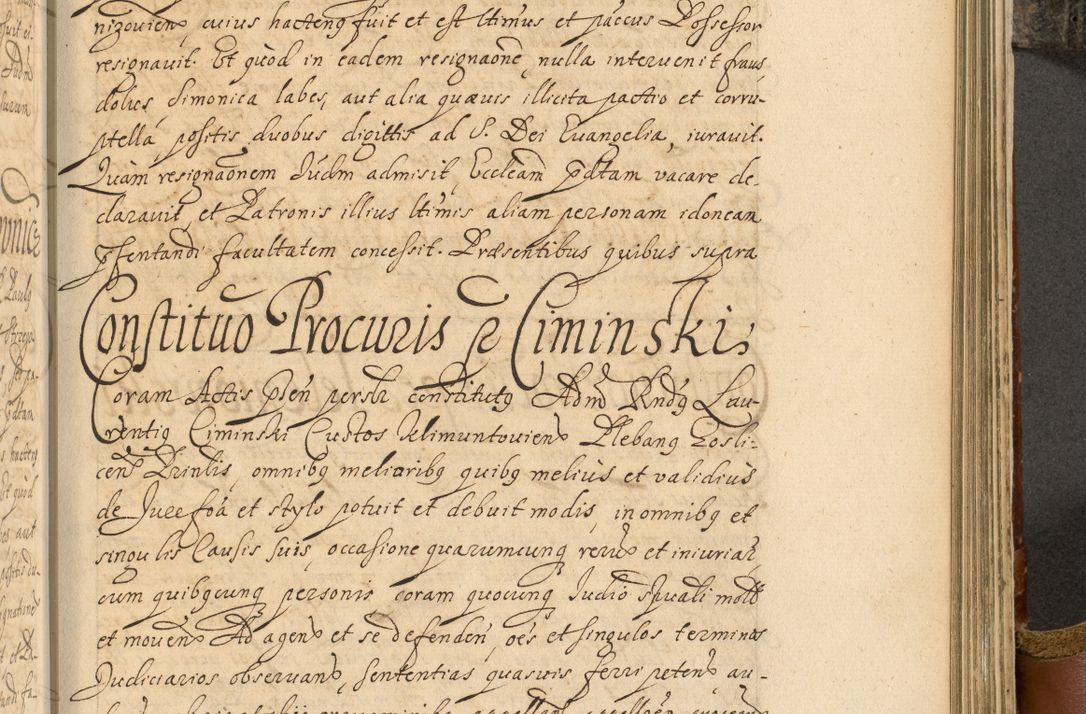 nizovien, cuius hacteng fuit et est ltimus et pacus Possessor
resignavit. Et quod in eadem resignaone, nulla intervenit fraus,
dolus, Simonica labes, aut alia quævis illicita pactio et corru-
ptella positis duobus digittis ad S. Dei Evangelia, iuravit.
Quam resignaonem Judm admisit, Eccleam pdtam vacare de-
claravit, et Patronis illius ltimis aliam personam idonean
psentandi facultatem concessit. Præsentibus quibus supra
Constituo Procuris p Ciminski
Coram Actis psen persr constitutg Admd Rndg Lau-
rentig Ciminski Custos Zelimuntovien Plebang
omnibg melioribg quibg melius et validius
de Jure foa et stylo potuit et debuit modis, in omnibg et
singulis Causis suis, occasione quarumcunq rerum et iniuriar
cum quibgcunq personis coram quocunq Judio Spuali mott
et moven Ad agen et se defenden, oes et singulos terminos
Judiciarios observan, sententias quasvis ferri peten, au-